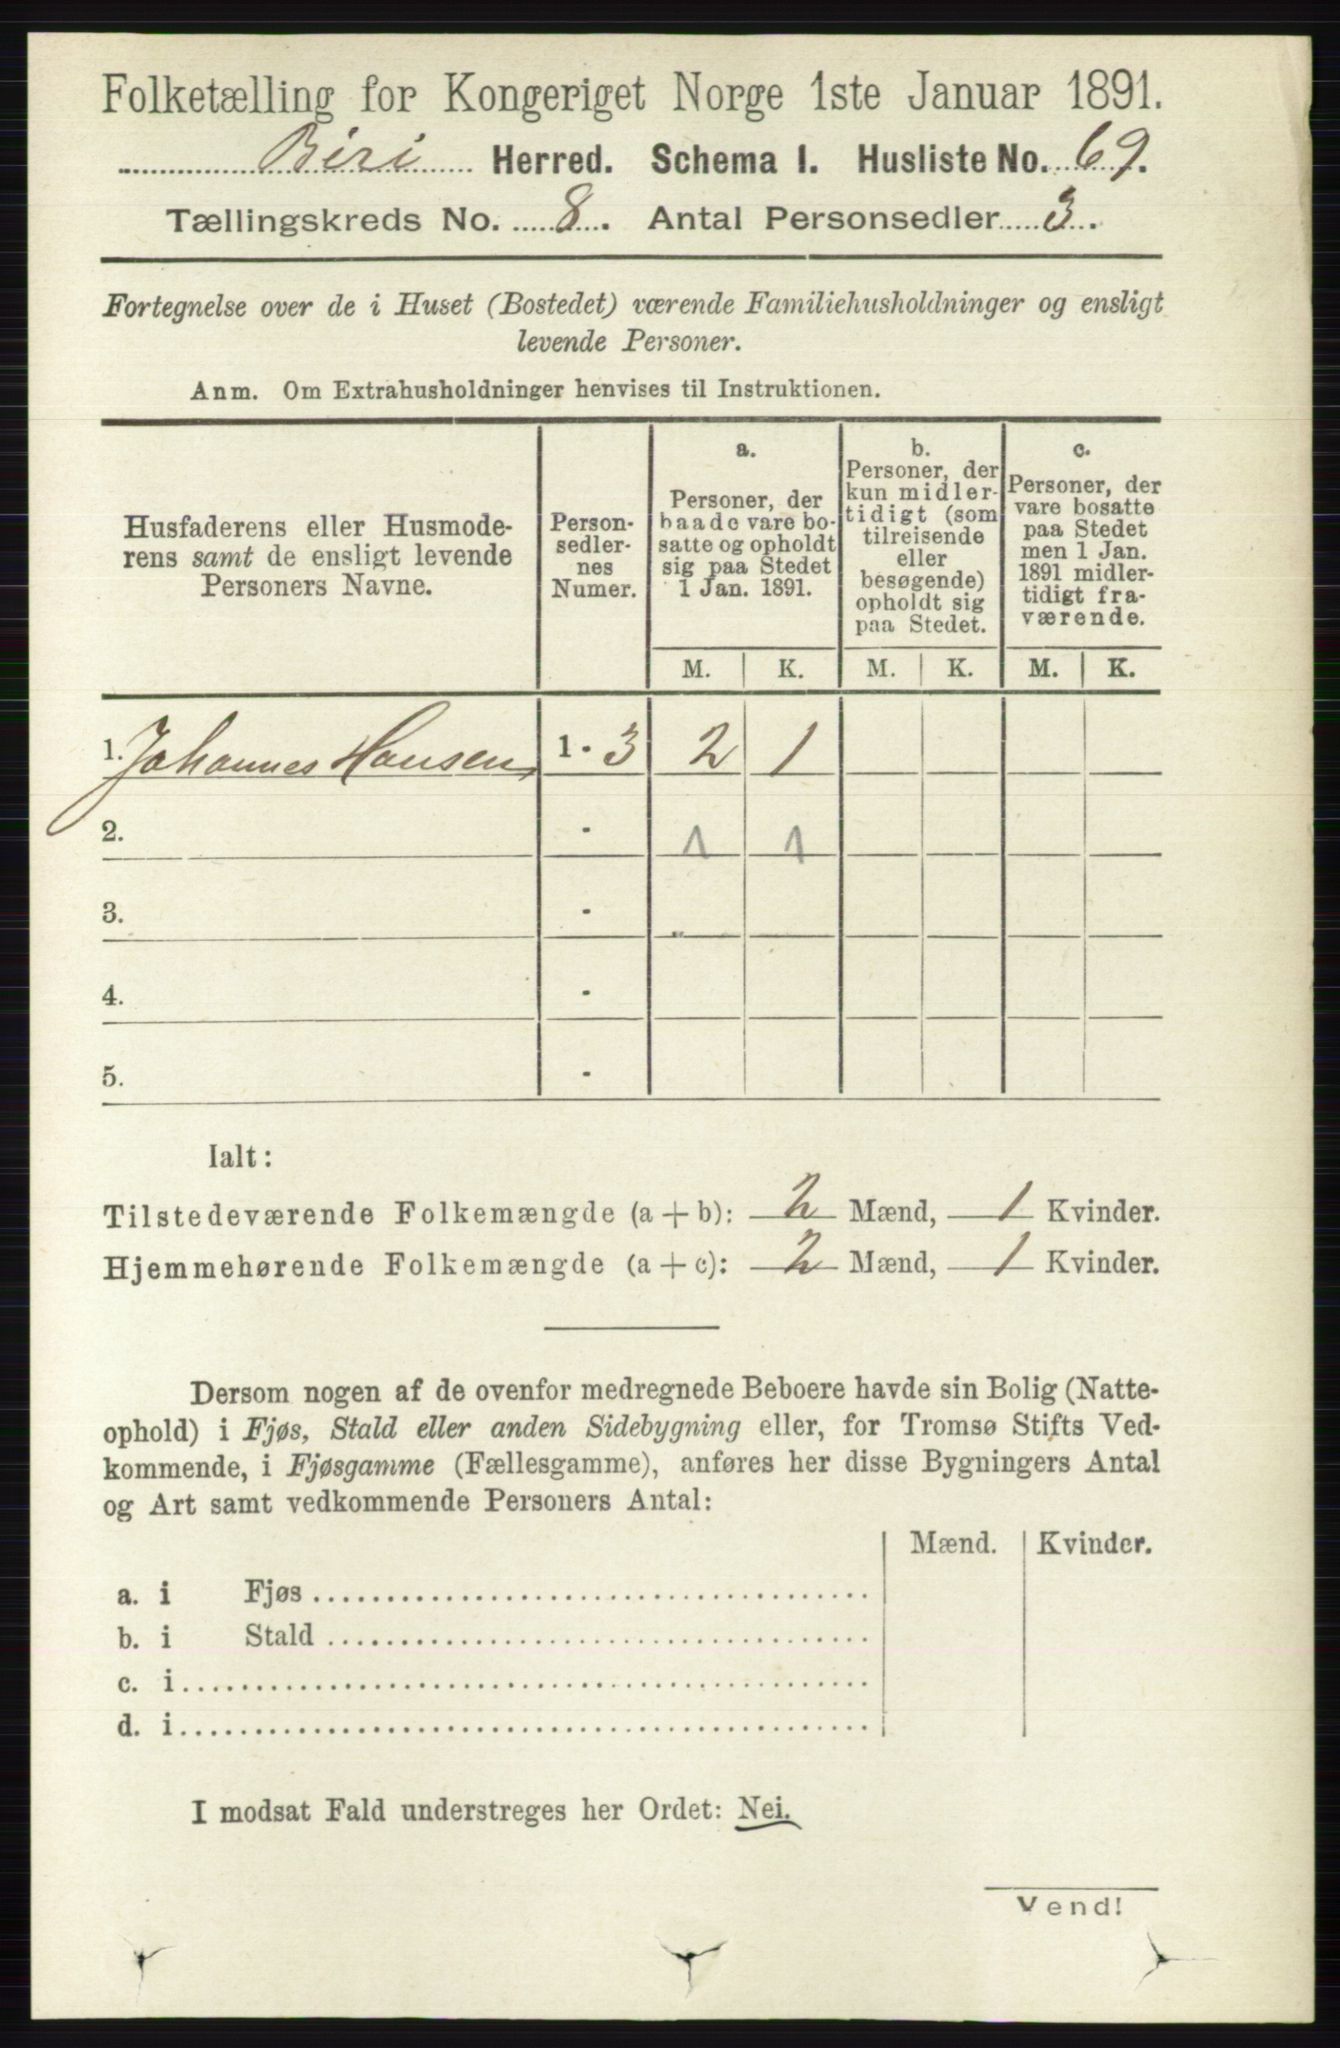 Folketælling for Kongeriget Norge 1ste Januar 1891.
Biri Herred. Schema I. Husliste No. 69.
Tællingskreds No. 8. Antal Personsedler 3.
Fortegnelse over de i Huset (Bostedet) værende Familiehusholdninger og ensligt
levende Personer.
Anm. Om Extrahusholdninger henvises til Instruktionen.
Husfaderens eller Husmode-
rens samt de ensligt levende
Personers Navne.
Person-
sedler-
nes
Numer.
a.
Personer, der
baade vare bo-
satte og opholdt
sig paa Stedet
1 Jan. 1891.
b.
Personer, der
kun midler-
tidigt (som
tilreisende
eller
besøgende)
opholdt sig
paa Stedet.
c.
Personer, der
vare bosatte
paa Stedet
men 1 Jan.
1891 midler-
tidigt fra-
værende.
M. K. M. K. M. K.
1. Johannes Hansen 1 - 3 2 1
2. - 1 1
3. -
4. -
5. -
Ialt:
Tilstedeværende Folkemængde (a + b): 2 Mænd, 1 Kvinder.
Hjemmehørende Folkemængde (a + c): 2 Mænd, 1 Kvinder.
Dersom nogen af de ovenfor medregnede Beboere havde sin Bolig (Natte-
ophold) i Fjøs, Stald eller anden Sidebygning eller, for Tromsø Stifts Ved-
kommende, i Fjøsgamme (Fællesgamme), anføres her disse Bygningers Antal
og Art samt vedkommende Personers Antal:
Mænd. Kvinder.
a. i Fjøs
b. i Stald
c. i
d. i
I modsat Fald understreges her Ordet: Nei.
Vend!